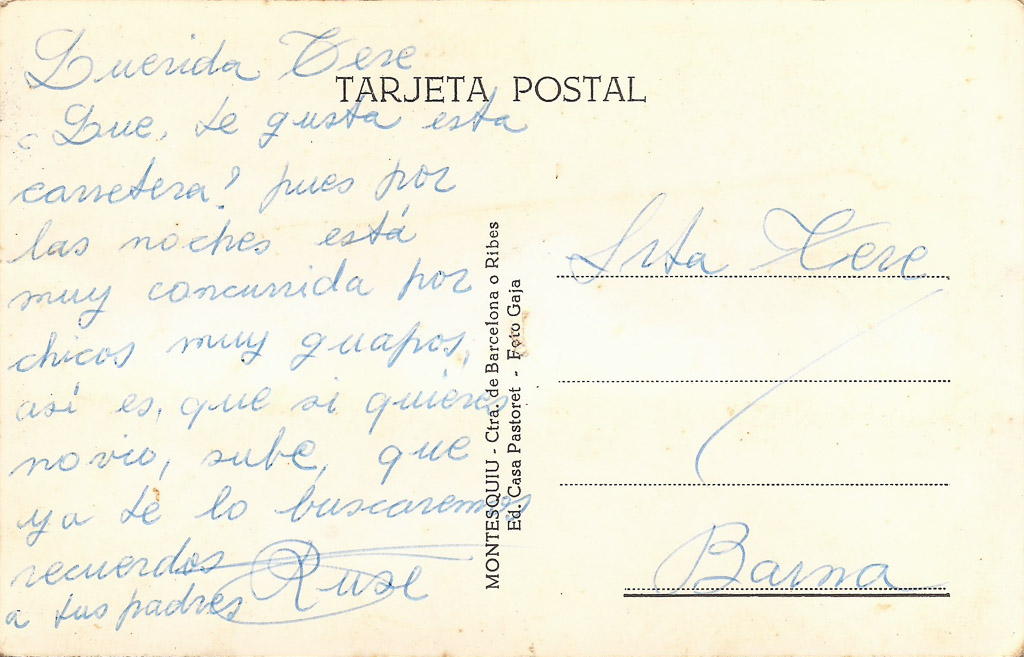 Querida Tere
TARJETA POSTAL
¿Que, te gusta esta
carretera? pues por
las noches está
muy concurrida por
chicos muy guapos,
así es, que si quieres
novio, sube, que
ya te lo buscaremos
recuerdos
a tus padres
Ruse
MONTESQUIU - Ctra. de Barcelona o Ribes
Ed. Casa Pastoret - Foto Gaja
Srta Tere
Barna